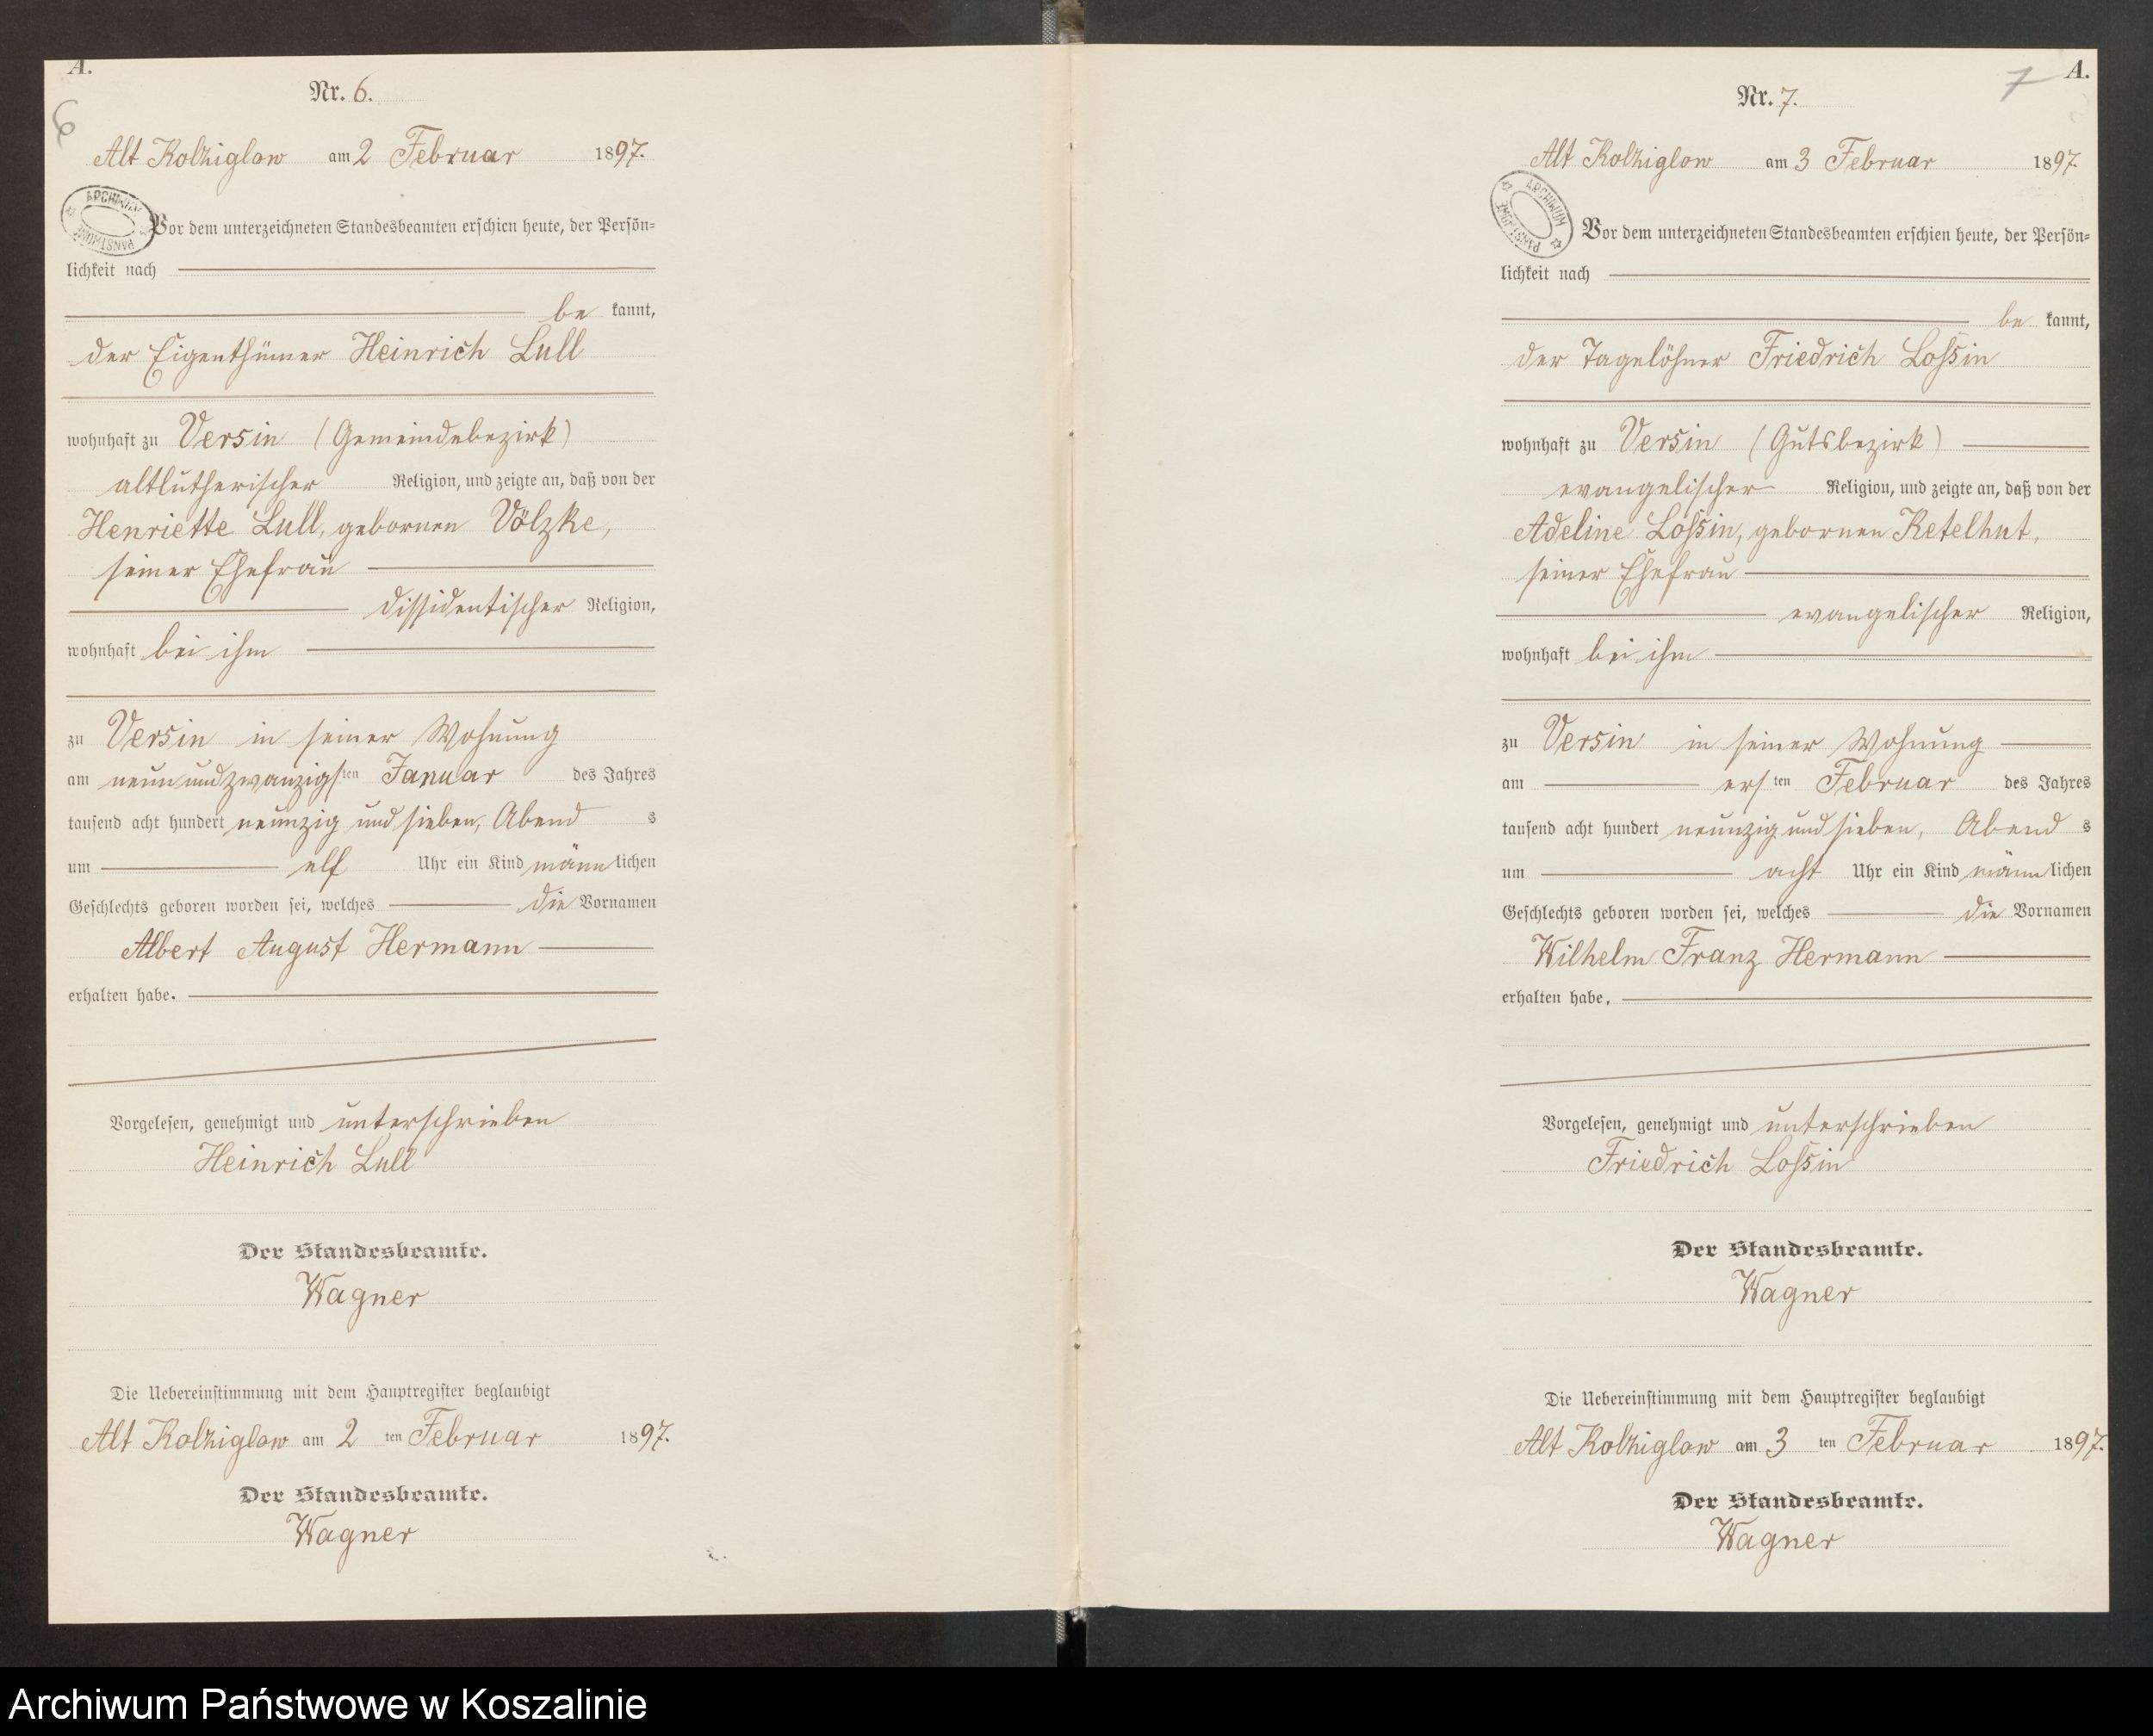 A.
6
Nr. 6.
Alt Kolziglow am 2 Februar 1897.
Vor dem unterzeichneten Standesbeamten erschien heute, der Persön=
lichkeit nach
be kannt,
der Eigenthümer Heinrich Lull
wohnhaft zu Versin (Gemeindebezirk)
altlutherischer Religion, und zeigte an, daß von der
Henriette Lull, gebornen Völzke,
seiner Ehefrau
dissidentischer Religion,
wohnhaft bei ihm
zu Versin in seiner Wohnung
am neunundzwanzigsten Januar des Jahres
tausend acht hundert neunzig und sieben, Abend s
um elf Uhr ein Kind männlichen
Geschlechts geboren worden sei, welches die Vornamen
Albert August Hermann
erhalten habe.
Vorgelesen, genehmigt und unterschrieben
Heinrich Lull
Der Standesbeamte.
Wagner
Die Uebereinstimmung mit dem Hauptregister beglaubigt
Alt Kolziglow am 2 ten Februar 1897.
Der Standesbeamte.
Wagner
7 A.
Nr. 7.
Alt Kolziglow am 3 Februar 1897.
ARCHIWUM PAŃSTWOWE
Vor dem unterzeichneten Standesbeamten erschien heute, der Persön=
lichkeit nach
be kannt,
der Tagelöhner Friedrich Lossin
wohnhaft zu Versin (Gutsbezirk)
evangelischer Religion, und zeigte an, daß von der
Adeline Lossin, gebornen Ketelhut,
seiner Ehefrau
evangelischer Religion,
wohnhaft bei ihm
zu Versin in seiner Wohnung
am ersten Februar des Jahres
tausend acht hundert neunzig und sieben, Abend s
um acht Uhr ein Kind männlichen
Geschlechts geboren worden sei, welches die Vornamen
Wilhelm Franz Hermann
erhalten habe.
Vorgelesen, genehmigt und unterschrieben
Friedrich Lossin
Der Standesbeamte.
Wagner
Die Uebereinstimmung mit dem Hauptregister beglaubigt
Alt Kolziglow am 3 ten Februar 1897.
Der Standesbeamte.
Wagner
Archiwum Państwowe w Koszalinie